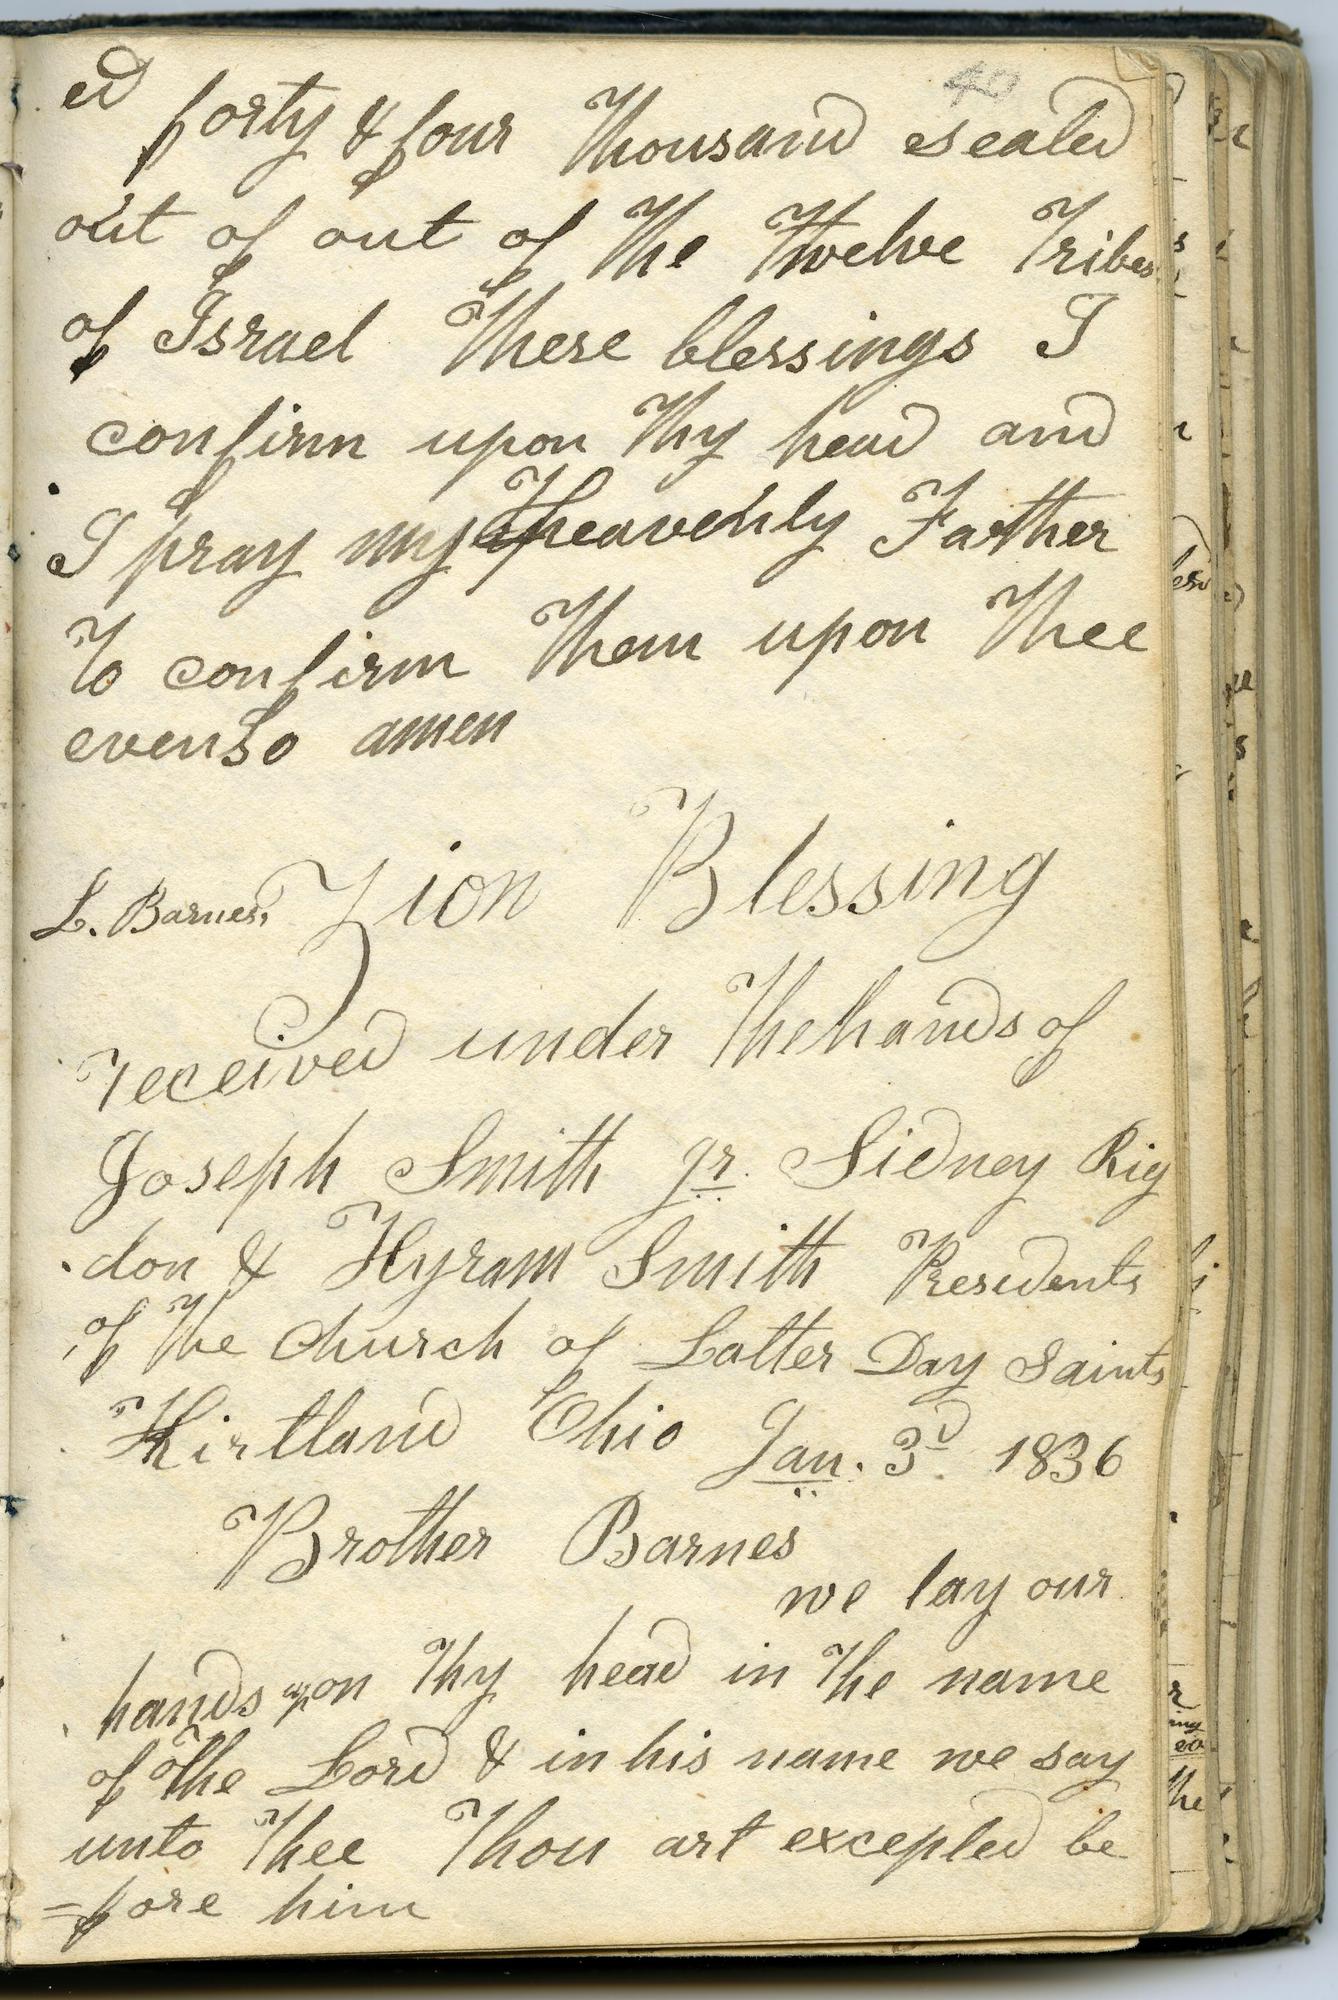 40
ed forty & four Thousand sealed
out of out of The Twelve Tribes
of Israel These blessings I
confirm upon Thy head and
I pray my Heavenly Farther
To confirm Them upon Thee
even So amen
L. Barnes, Zion Blessing
received under The hands of
Joseph Smith jr. Sidney Rig
don & Hyram Smith Presidents
of The church of Latter Day Saints
Kirtland Ohio Jan. 3d 1836
Brother Barnes
we lay our
hands upon Thy head in The name
of The Lord & in his name we say
unto Thee Thou art excepted be
=fore him